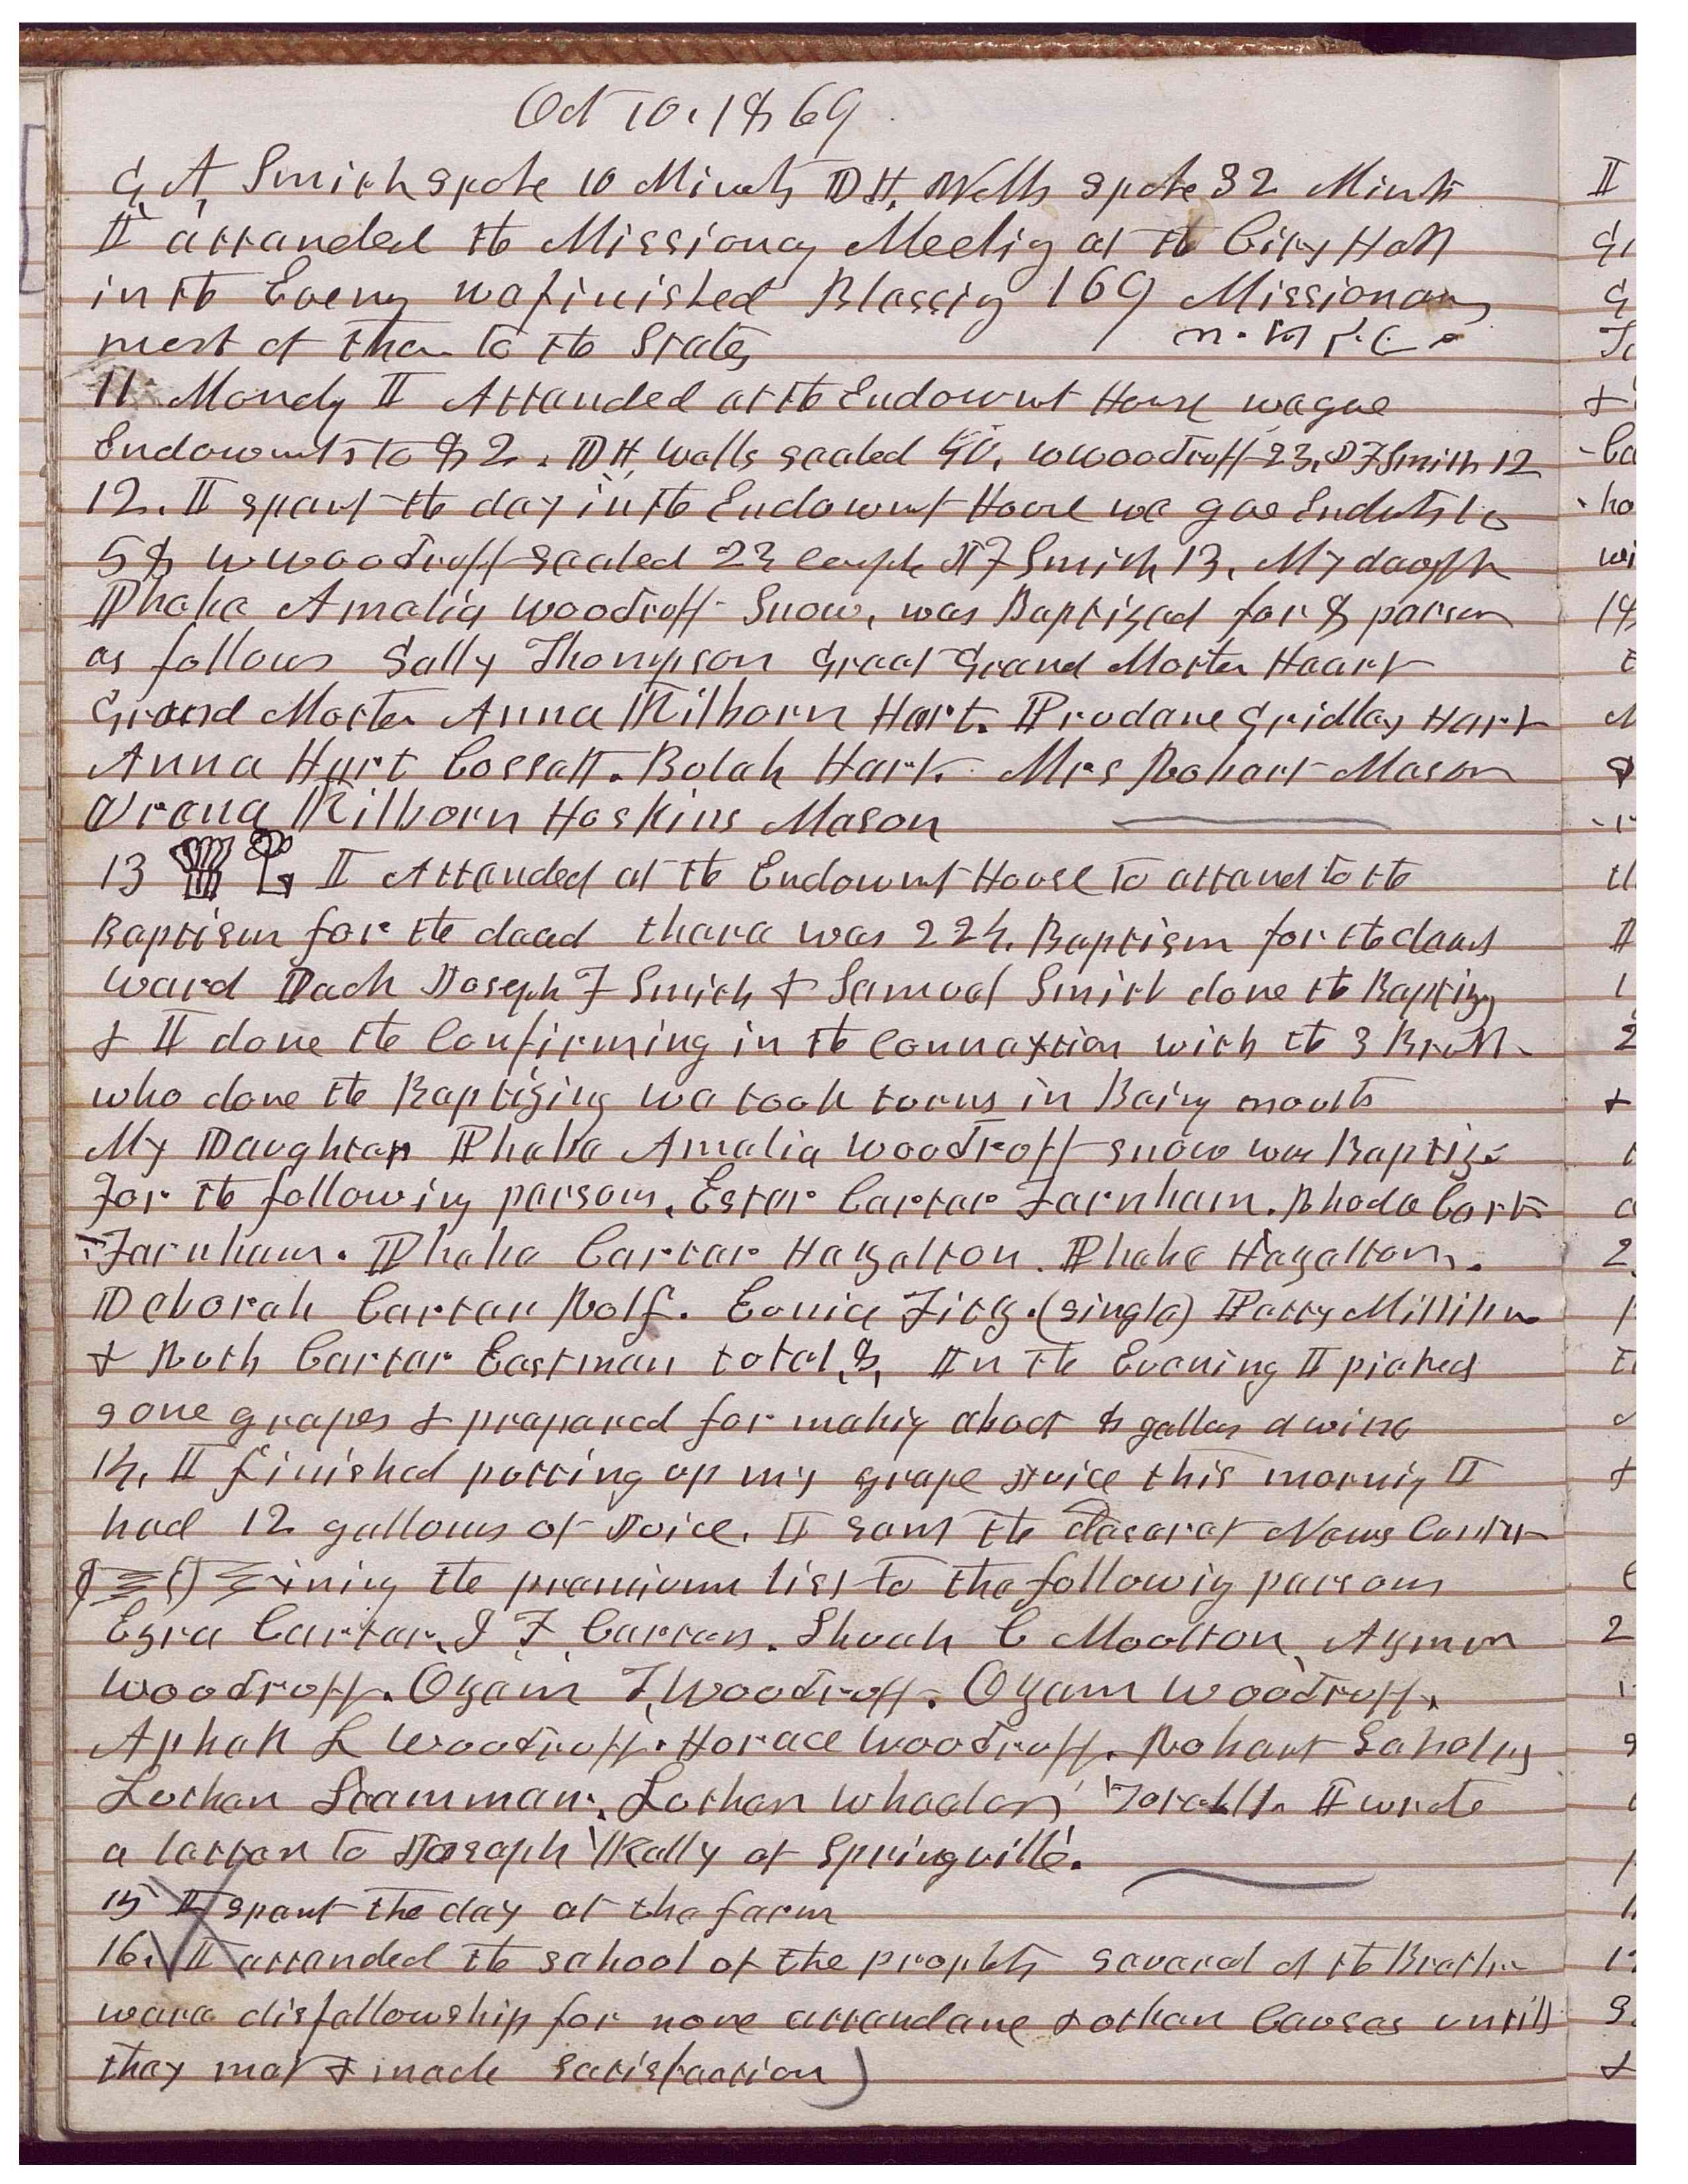 Oct 10, 1869
G, A, Smith spoke 10 Minuts D H, Wells spoke 32 Minuts
I attended the Missionay Meeting at the City Hall
in the Eveng we finished Blessing 169 Missionary
most of them to the States
11 Mondy I Attended at the Endowmt House we gave
Endowmts to 82. D H, Wells sealed 40, W Woodruff 23, J F Smith 12
12. I spent the day in the Endowmt House we gave Endmts to
58 W Woodruff sealed 22 couple J F Smith 13, My daughtr
Phebe Amelia Woodruff Snow, was Baptized for 8 persons
as follows Sally Thompson Great Grand Mother Heart
Grand Mother Anna Kilborn Hart. Prudance Gridley Hart
Anna Hart Cossett. Bulah Hart. Mrs Robert Mason
Urana Kilborn Hoskins Mason
13 I Attended at the Endowmt House to attend to the
Baptism for the dead there was 224. Baptism for the dead
Ward Pack Joseph F Smith & Samuel Smith done the Baptizg
& I done the Confirming in the Connexion with the 3 Breth-
who done the Baptizing we took turns in Being mouth
My Daughter Phebe Amelia Woodruff Snow was Baptize
for the following persons, Ester Carter Farnham. Rhoda Cart
-Farnham. Phebe Carter Hazelton. Phebe Hazelton.
Deborah Carter Rolf. Eunice Fitz. (single) Patty Milliken
& Ruth Carter Eastman total, 8, In the Evening I picked
some grapes & prepared for making about 8 gallons of wine
14, I finished putting up my grape Juice this morning I
had 12 gallons of Juice. I sent the Deseret News Contn
-ining the premium list to the following persons
Ezra Carter, I F, Carter. Shuah C Moulton, Azmon
Woodruff. Ozem T, Woodruff. Ozem Woodruff,
Aphek L Woodruff. Horace Woodruff. Robert Scholes
Luther Scamman. Luther Wheeler, Total 11. I wrote
a letter to Joseph Kelly of Springville.
15 I spent the day at the farm
16. I attended the school of the prophets several of the Brethn
were disfellowship for none attendance & other Causes untill
they met & made satisfaction)